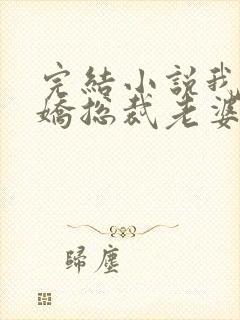 完結小説我
嬌總裁老婆
歸塵